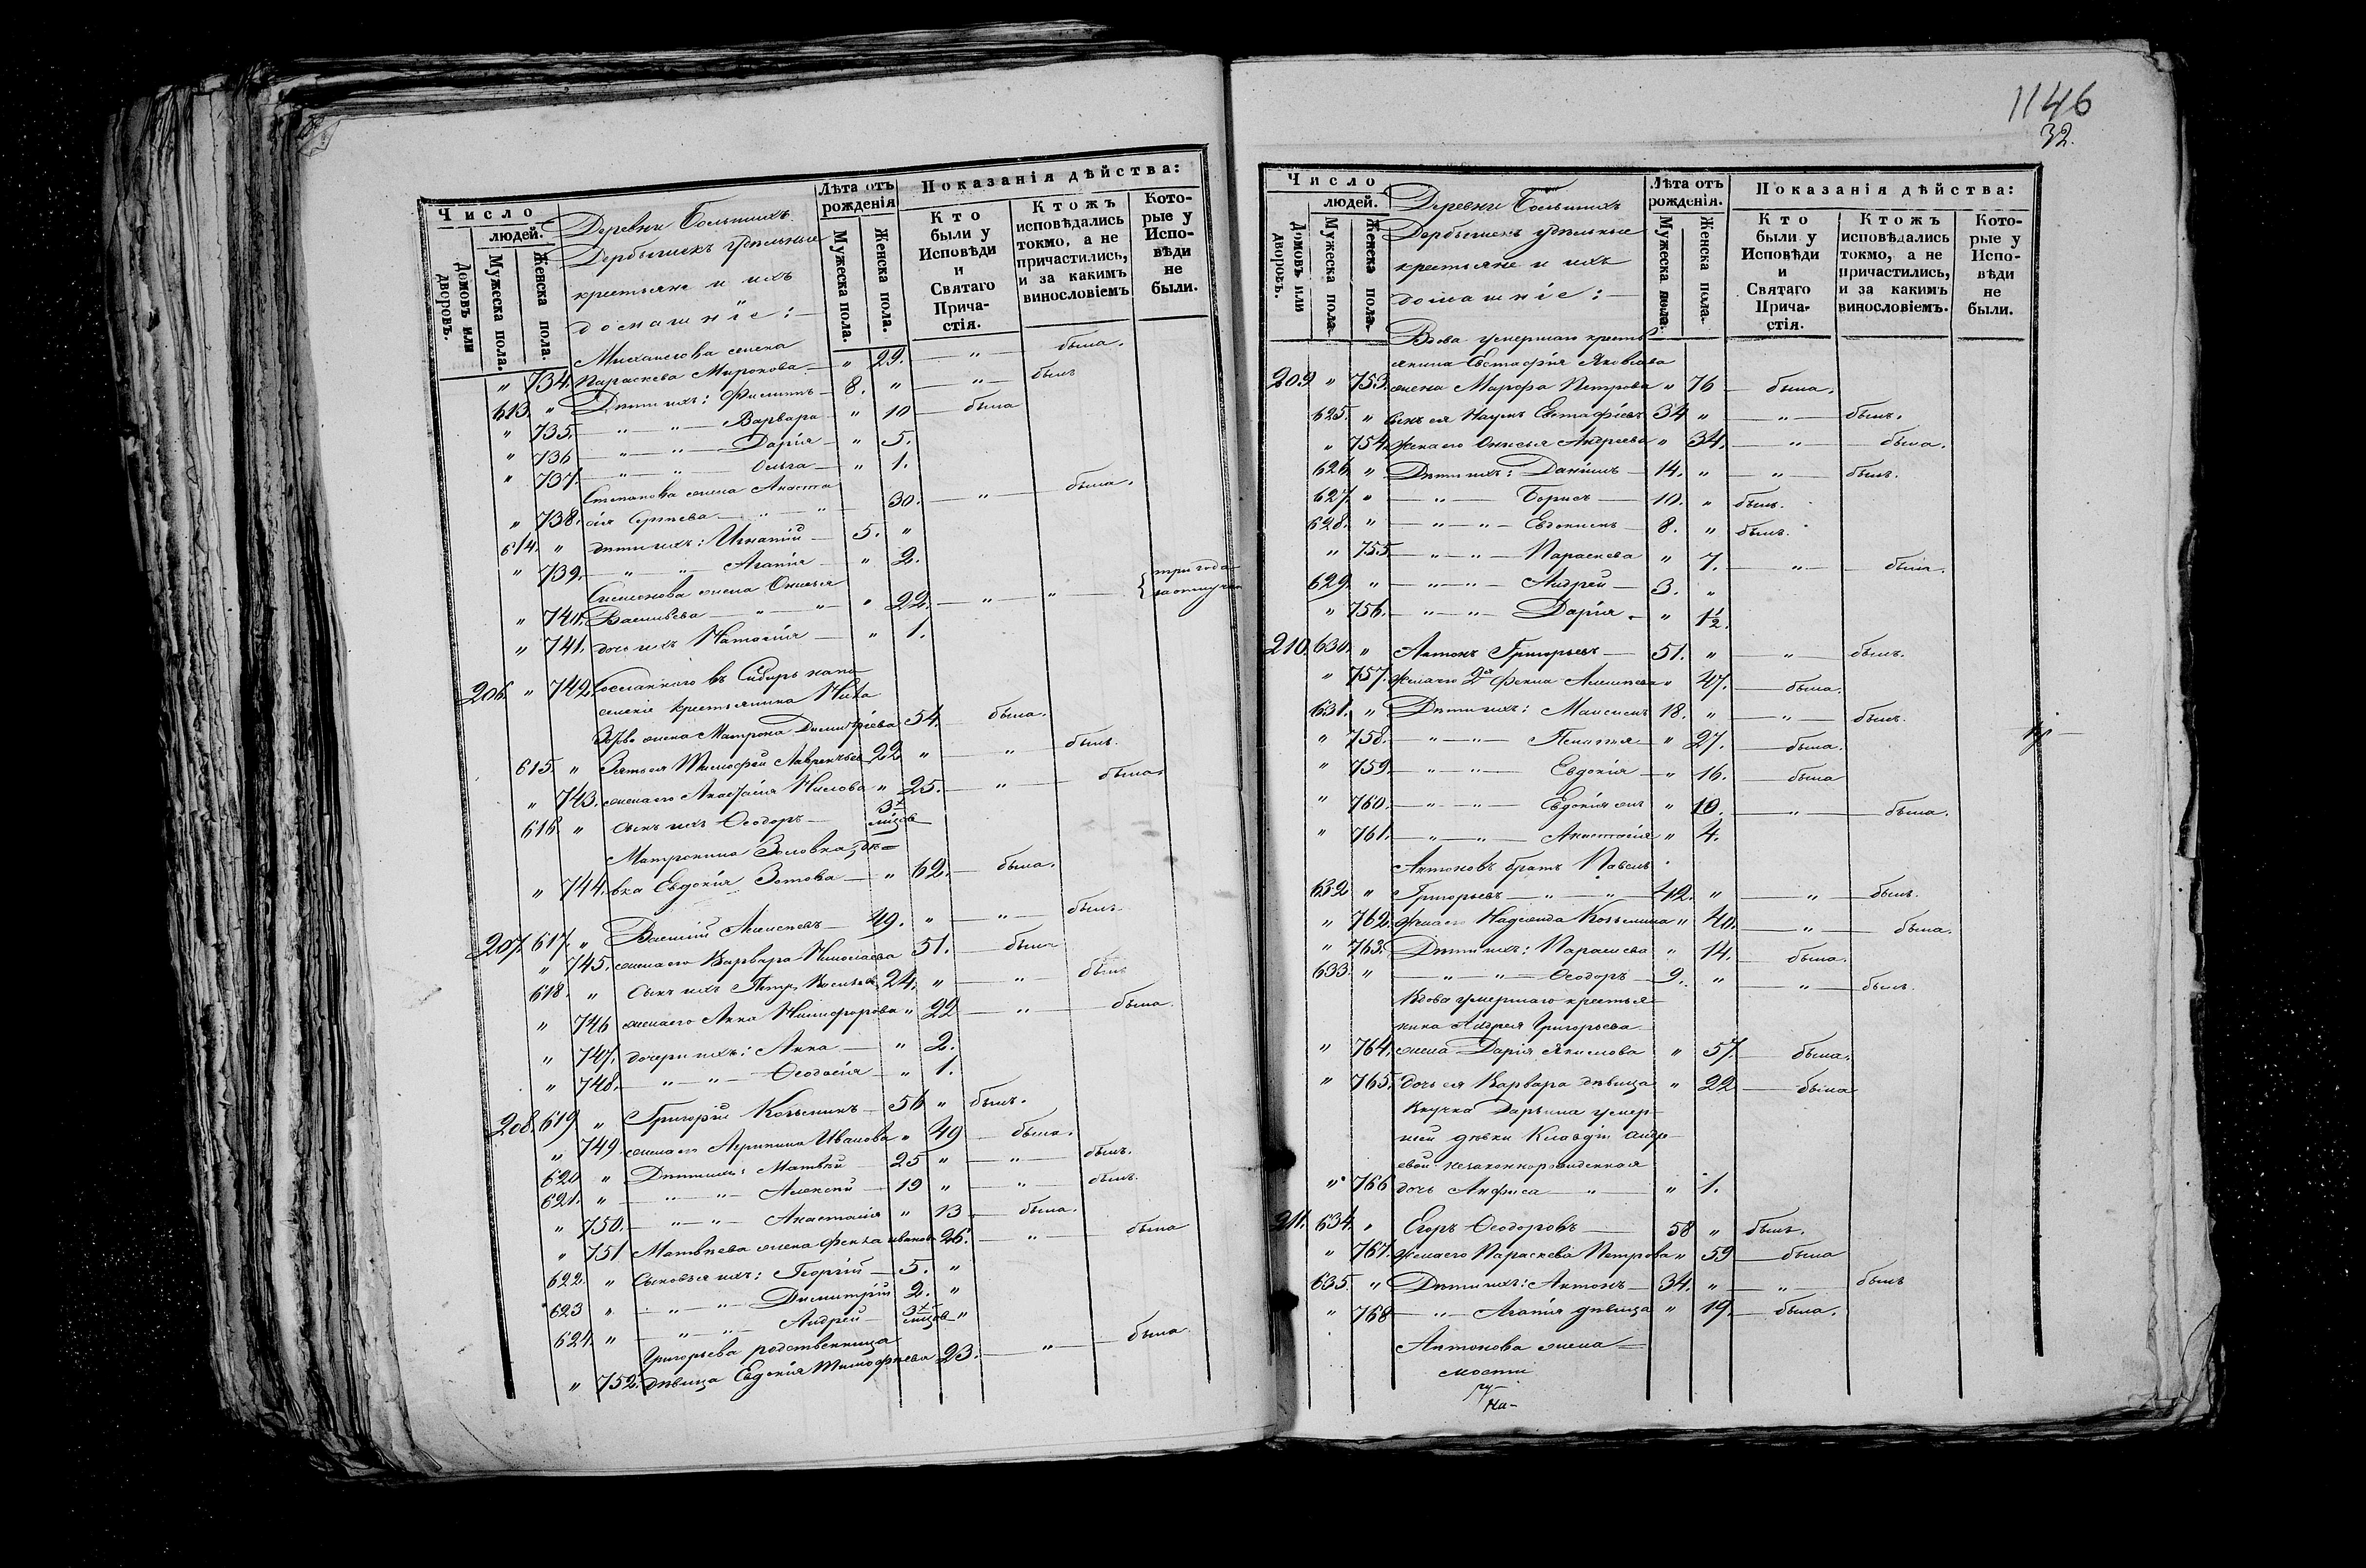 Число
людей.
Домовъ или дворовъ.
Мужеска пола.
Женска пола.
Деревни Большихъ
Дербышекъ удѣльные
крестьяне и ихъ
домашніе:
Лѣта отъ рожденія
Мужеска пола.
Женска пола.
Показанія дѣйства:
Кто были у Исповѣди и Святаго Причастія.
Ктожъ исповѣдались токмо, а не причастились, и за какимъ винословіемъ
Которые у Исповѣди не были.
Михаилова жена
" 734. Параскева Миронова " 29. " была.
613. " Дѣти ихъ: Филиппъ 8. " " былъ
" 735. " " Варвара " 10 была
" 736 " " Дарія " 5.
" 737. " " Ольга " 1.
Степанова жена Анаста
" 738. сія Сергѣева " " 30. " была.
614. " дѣти ихъ: Игнатій 5. "
" 739. " " Агапія " 2.
Симеонова жена Онисья
" 740. Васильева " " " 22. " " три года
" 741. дочь ихъ Наталія " 1.
206. " 742. Сосланнаго въ Сибирь на по
селеніе крестьянина
жена Матрона Димитріева 54. была.
615. " Зять ея Тимофей Лаврентьев 22 " " былъ.
" 743. жена его Анастасія Нилова " 25. " была.
616 " сынъ ихъ Ѳеодоръ 3х мѣсяцов
Матронина Золовка, дѣ
" 744. вка Евдокія Зотова " 62. была.
207. 617. " Василій Алексѣевъ 49. " " былъ
" 745. жена его Варвара Николаева 51. была
618. " Сынъ ихъ Петръ Васильев 24. " " былъ
" 746 жена его Анна Никифорова " 22 " была.
" 747. дочери ихъ: Анна " 2.
" 748. " " Ѳеодосія " 1.
208. 619 " Григорій Козьминъ 56 " былъ.
" 749. жена его Агрипина Иванова " 49 была.
620 " Дѣти ихъ: Матвѣй 25 " " былъ.
621. " " " Алексѣй 19 " " былъ.
" 750. " " Анастасія " 13 была.
" 751 Матвѣева жена Фекла Иванов 26. " была
622. " Сыновья ихъ: Георгій 5. "
623 " " " Димитрій 2. "
624. " " " Андрей 3х мѣсяцов "
Григорьева родственница
" 752. дѣвица Евдокія Тимофѣева 23. " была
1146
32.
Число
людей.
Домовъ или дворовъ.
Мужеска пола.
Женска пола.
Деревни Большихъ
Дербышекъ удѣльные
крестьяне и ихъ
домашніе:
Лѣта отъ рожденія.
Мужеска пола.
Женска пола.
Показанія дѣйства:
Кто были у Исповѣди и Святаго Причастія.
Ктожъ исповѣдались токмо, а не причастились, и за какимъ винословіемъ.
Которые у Исповѣди не были.
Вдова умершаго кресть
янина Евстафія Яковлева
209 " 753. жена Марфа Петрова " 76 была.
625. " Сынъ ея Наумъ Евстафіевъ 34 " " былъ.
" 754. Жена его Онисья Андреева " 34. " была.
626. " Дѣти ихъ: Даніилъ 14. " " былъ.
627. " " Борисъ 10. " былъ.
628. " " " Евдокимъ 8. " былъ.
" 755. " " Параскева " 7. " была.
629. " " " Андрей 3. "
" 756. " " Дарія " 1½.
210. 630. " Антонъ Григорьевъ 51. " " былъ.
" 757. Жена его 2я Фекла Алексѣева " 47. была.
631. " Дѣти ихъ: Максимъ 18. " " былъ.
" 758. " " Пелагія " 27. была.
" 759. " " Евдокія " 16. была
" 760. " " Евдокія " 10. " была.
" 761. " " Анастасія " 4.
Антоновъ братъ Павелъ
632 " Григорьевъ " " 42. " " былъ.
" 762. Жена его Надежда Козьмина " 40. " была.
" 763. Дѣти ихъ: Параскева " 14. была.
633. " " " Ѳеодоръ 9. " " былъ.
Вдова умершаго крестья
нина Андрея Григорьева
" 764. жена Дарія Якимова " 57. была.
" 765. дочь ея Варвара дѣвица " 22 была
Внучка Дарьина умер
шей дѣвки Клавдіи Андре
евой незаконнорожденная
" 766 дочь Анфиса " " 1.
211. 634. " Егоръ Ѳеодоровъ 58 " былъ.
" 767. Жена его Параскева Петрова " 59 была
635. " Дѣти ихъ: Антонъ 34. " " былъ
" 768 " Агапія дѣвица " 19. была.
Антонова жена